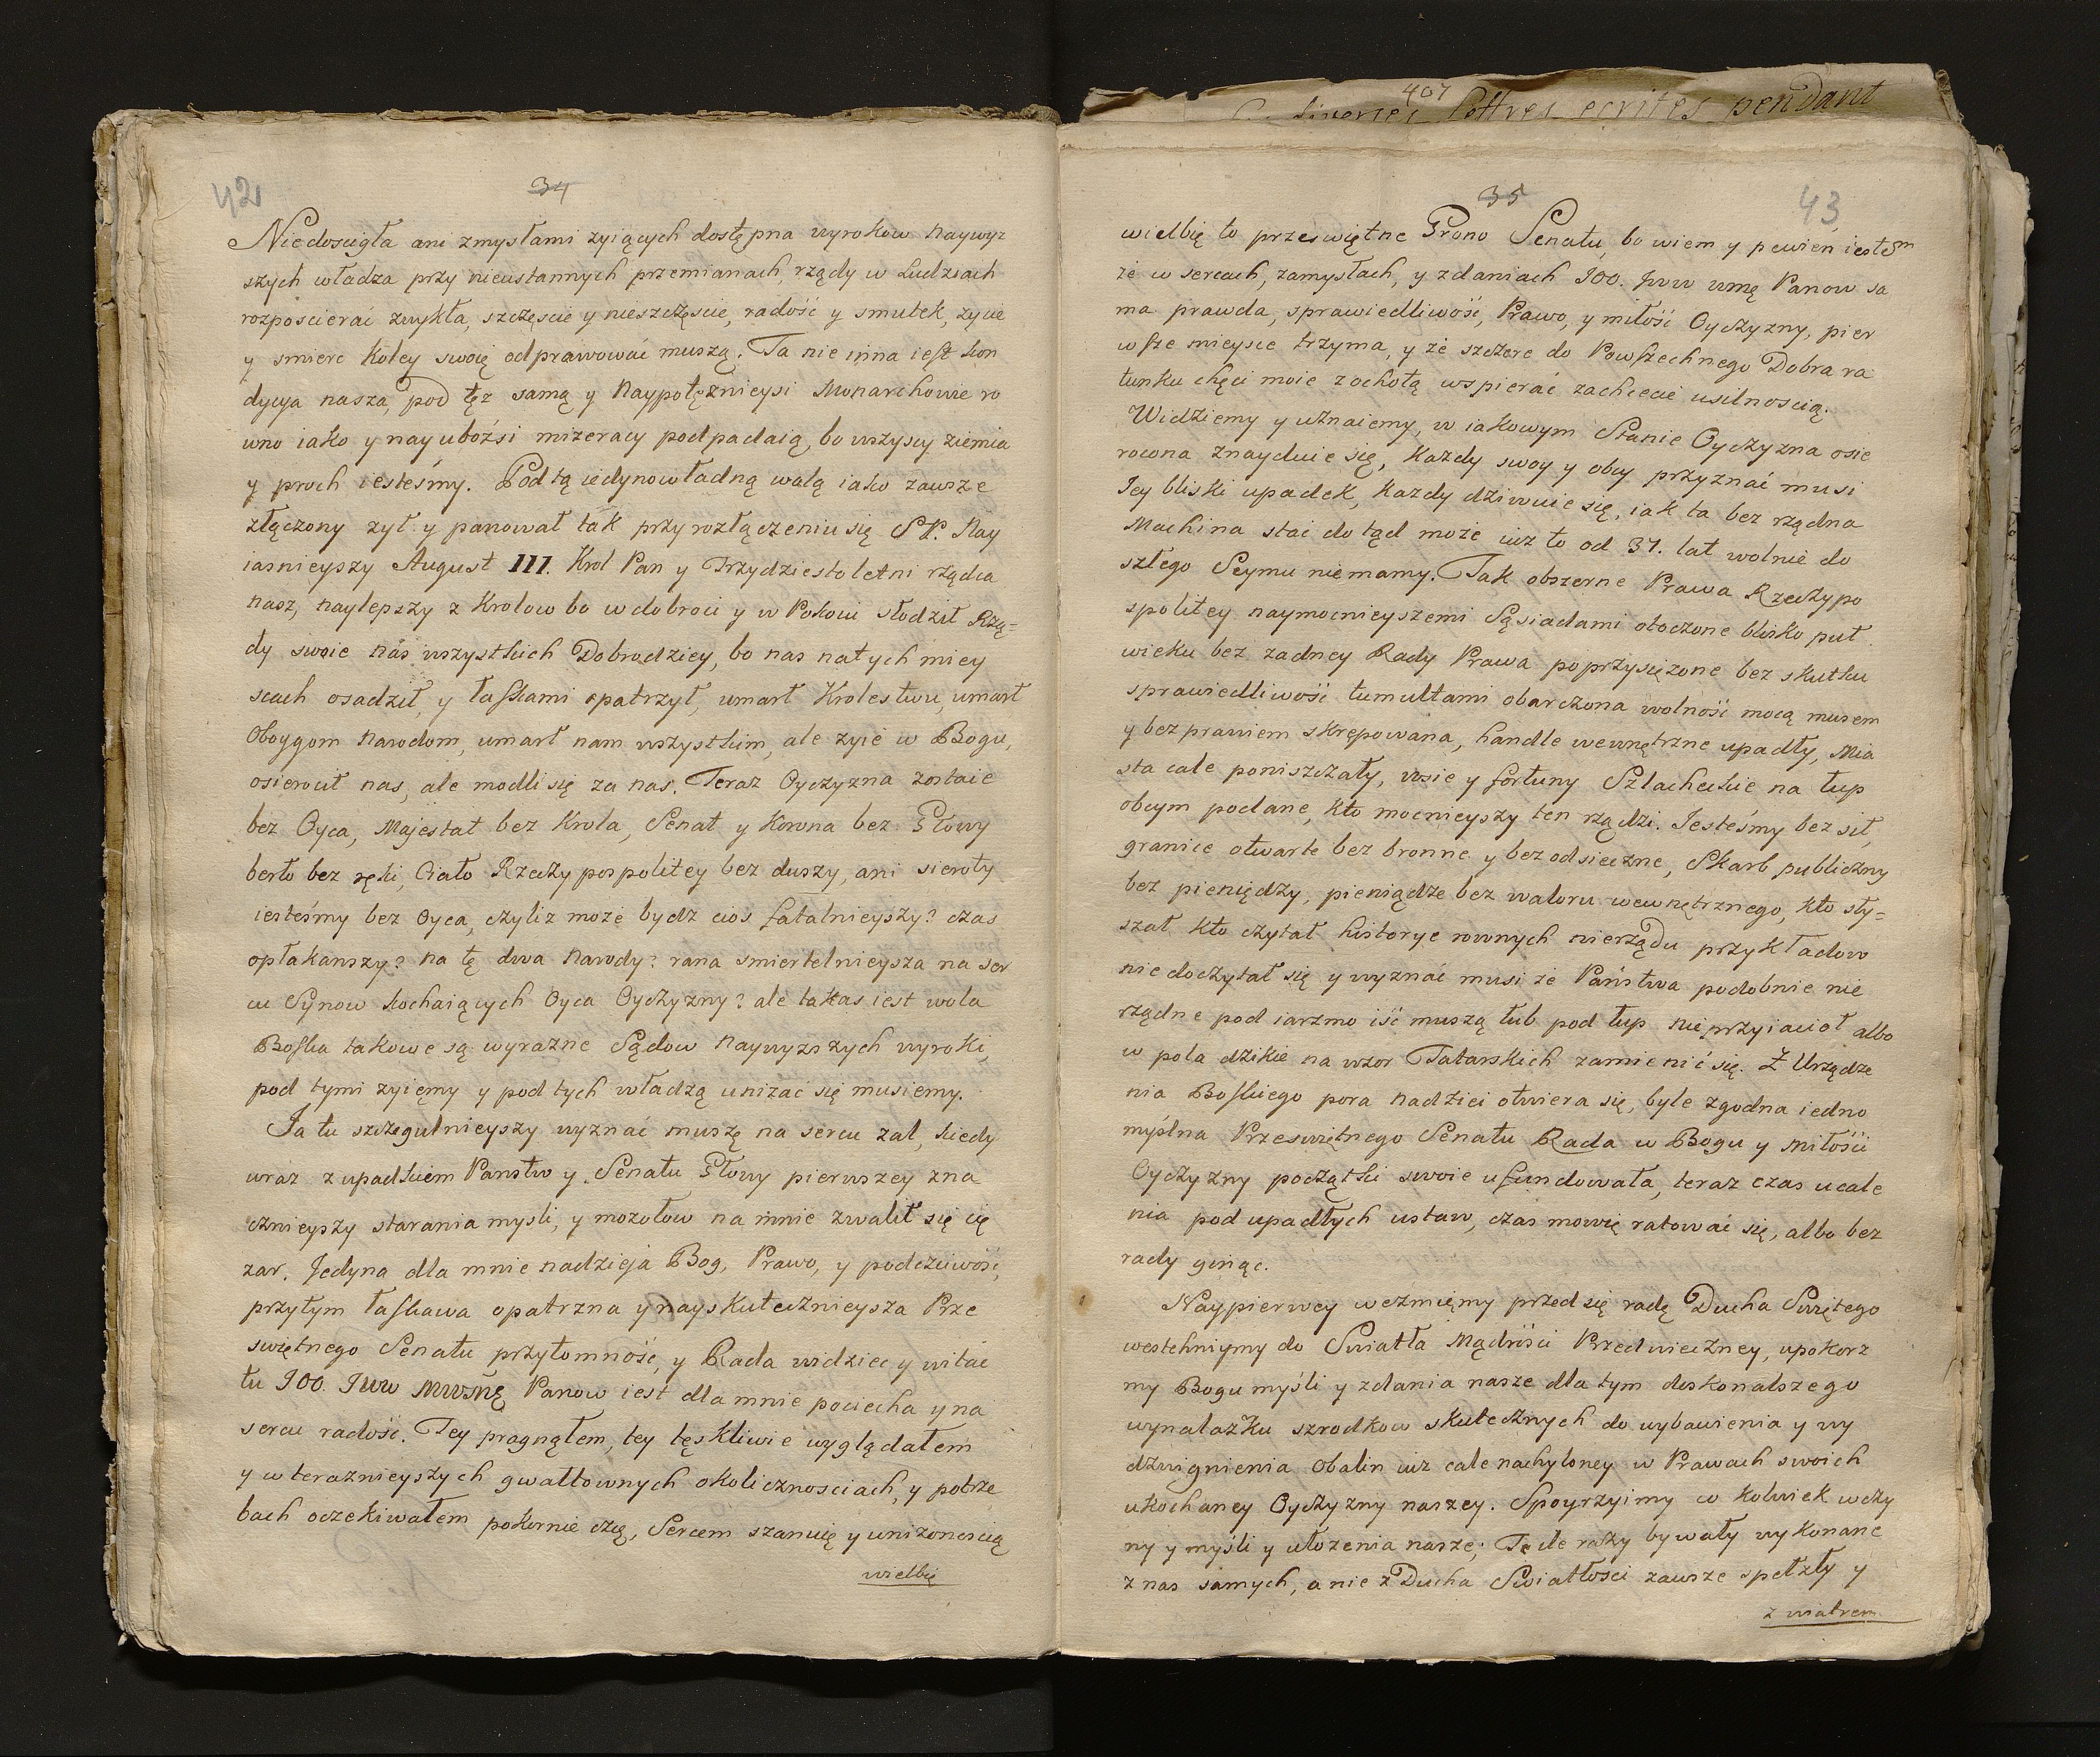 42
34
Niedoscigła ani zmysłami zyiących dostępna wyrokow naywyz
szych władza przy nieustannych przemianach, rządy w Ludziach
rozposcierać zwykła, szczęscie y nieszczęscie, radość y smutek, zycie
y smierc koley swoię odprawować muszą. Ta nie inna iest kon
dycya nasza, pod tęz samą y naypotęznieysi Monarchowie ro
wno iako y nayuboźsi mizeracy podpadaią, bo wszyscy ziemia
y proch iesteśmy. Pod tą iedynowładną walą iako zawsze
złączony zył y panował tak przy rozłączeniu się S. P. Nay
iasnieyszy August III. Krol Pan y Trzydziestoletni rządca
nasz, naylepszy z Krolow bo w dobroci y w Pokoiu słodził Rzą=
dy swoie nás wszystkich Dobrodziey, bo nas na tych miey
scach osadził, y łaskami opatrzył, umarł Krolestwu, umarł
Oboygom narodom, umarł nam wszystkim, ale zyie w Bogu,
osierocił nas, ale modli się za nas. Teraz Oyczyzna zostaie
bez Oyca, Majestat bez Krola, Senat y Korona bez Głowy
berło bez ręki, Ciało Rzeczypospolitey bez duszy, ani sieroty
iesteśmy bez Oyca, czyliz może bydz cios fatalnieyszy? czas
opłakanszy? na tę dwa narody? rana smiertelnieysza na ser
cu Synow kochaiących Oyca Oyczyzny? ale takas iest wola
Boska takowe są wyrazne Sądow naywyzszych wyroki,
pod tymi zyięmy y pod tych władzą unizać się musiemy.
Ja tu szczegulnieyszy wyznać muszę na sercu zal, kiedy
wraz z upadkiem Państw y Senatu Głowy pierwszey zna
cznieyszy starania mysli, y mozołow na mnie zwalił się cię
zar. Jedyna dla mnie nadzieja Bog, Prawo, y podcziwość,
przytym łaskawa opatrzna y nayskutecznieysza Prze
swiętnego Senatu przytomność, y Rada widziec y witać
tu JOO. Jww mwśnę Panow iest dla mnie pociecha y na
sercu radość. Tey pragnąłem, tey tęskliwie wyglądałem
y w teraznieyszych gwałtownych okolicznosciach, y potrze
bach oczekiwałem pokornie czcę, Sercem szanuię y unizonoscią
wielbię
407
diverses lettres ecrites pendant
35
43
wielbię to przeswiętne Grono Senatu, bo wiem y pewien iestem
że w sercach, zamysłach, y zdaniach JOO. Jww wmę Panow sa
ma prawda, sprawiedliwość, Prawo, y miłość Oyczyzny, pier
wsze mieysce trzyma, y że szczere do Powszechnego Dobra ra
tunku chęci moie z ochotą wspierać zachcecie usilnoscią.
Widziemy y uznaiemy, w iakowym Stanie Oyczyzna osie
rocona znayduie się, Kazdy swoy y obcy przyznać musi
Jey bliski upadek, Kazdy dziwuie się, iak ta bez rządna
Machina stać do tąd może iuz to od 37. lat wolnie do
szłego Seymu niemamy. Tak obszerne Prawa Rzeczypo
spolitey naymocnieyszemi Sąsiadami otoczone blisko puł
wieku bez zadney Rady Prawa poprzysięzone bez skutku
sprawiedliwość tumultami obarczona wolność mocą musem
y bezprawiem skrępowana, handle wewnętrzne upadły, Mia
sta cale poniszczały, wsie y fortuny Szlacheckie na łup
obcym podane, kto mocnieyszy ten rządzi. Jesteśmy bez sił,
granice otwarte bez bronne y bez odsieczne, Skarb publiczny
bez pieniędzy, pieniądze bez waloru wewnętrznego, kto sły=
szał kto czytał historye rownych nierządu przykładow
nie doczytał się y wyznać musi że Państwa podobnie nie
rządne pod iarzmo iść muszą lub pod łup nieprzyiacioł albo
w pola dzikie na wzor Tatarskich zamienić się. Z Urządze
nia Boskiego pora nadziei otwiera się, byle zgodna iedno
myślna Przeswiętnego Senatu Rada w Bogu y miłości
Oyczyzny początki swoie ufundowała, teraz czas ucale
nia pod upadłych ustaw, czas mowię ratować się, albo bez
rady ginąc.
Naypierwey weźmięmy przed się radę Ducha Swiętego
westchniymy do Swiatła Mądrości Przedwieczney, upokorz
my Bogu myśli y zdania nasze dla tym doskonalszego
wynalazku szrodkow skutecznych do wybawienia y wy
dzwignienia Obalin iuz cale nachyloney w Prawach swoich
ukochaney Oyczyzny naszey. Spoyrzyimy co kolwiek w czy
ny y myśli y ułozenia nasze; Te ile razy bywały wykonane
z nas samych, a nie z Ducha Swiatłosci zawsze spełzły y
z wiatrem